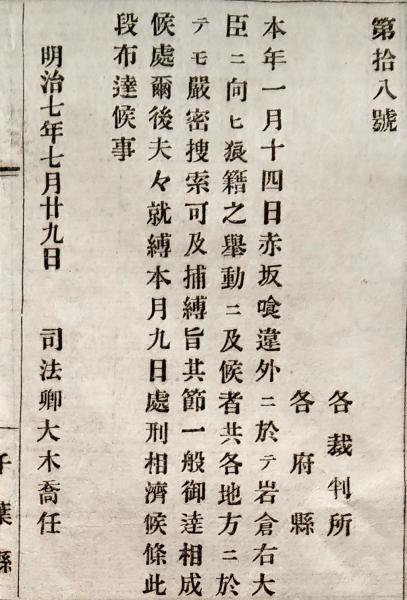 第拾八號
各裁判所
各府縣
本年一月十四日赤坂喰違外ニ於テ岩倉右大
臣ニ向ヒ狼籍之舉動ニ及候者共各地方ニ於
テモ嚴密搜索可及捕縛旨其節一般御達相成
候處爾後夫々就縛本月九日處刑相濟候條此
段布達候事
明治七年七月廿九日 司法卿大木喬任
千葉縣